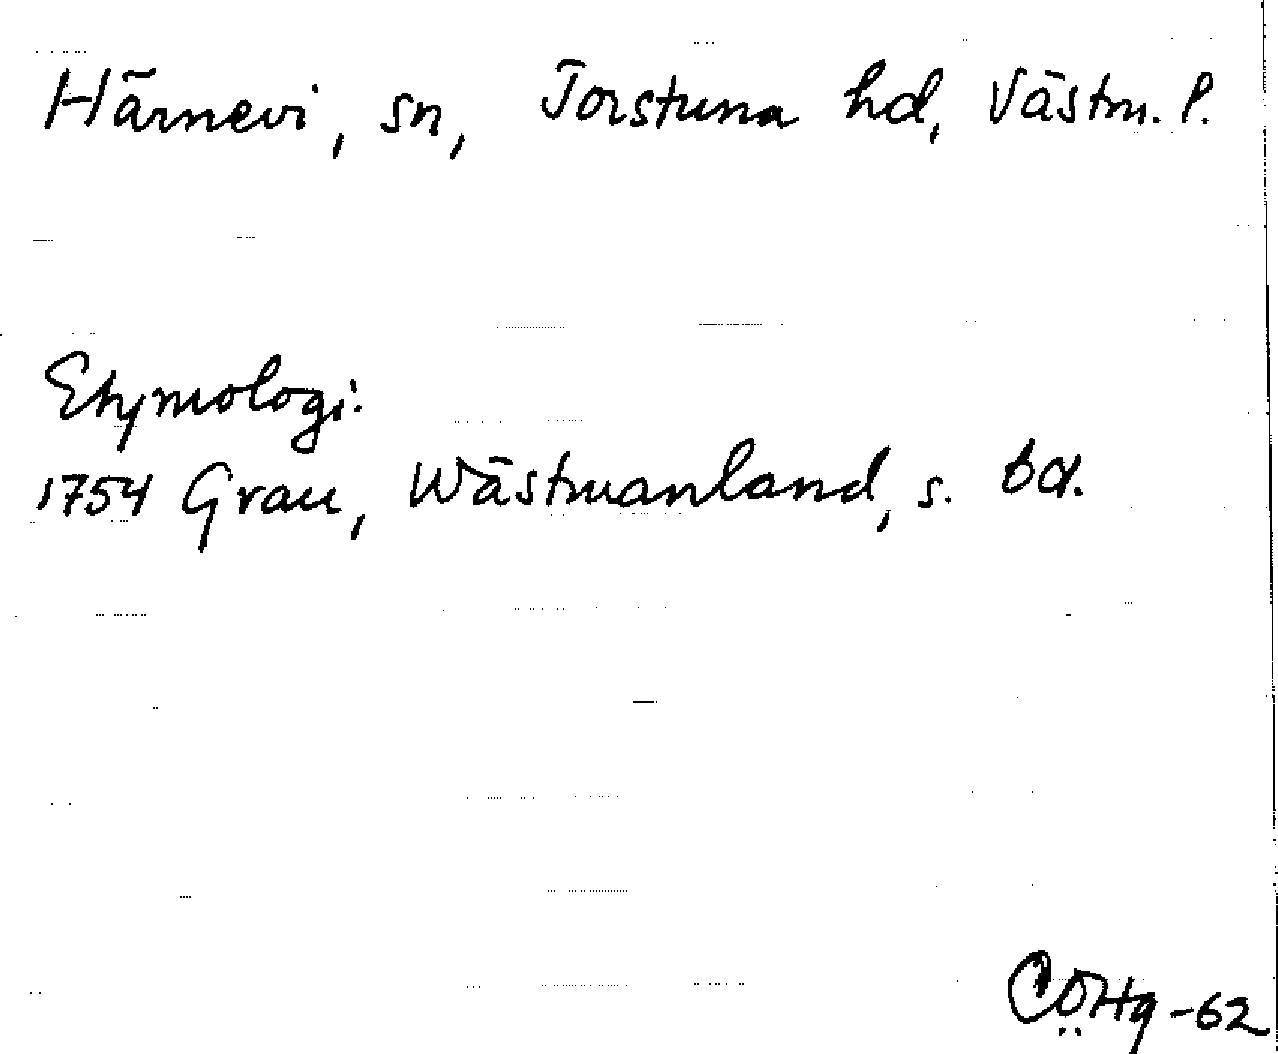 Härnevi, sn, Torstuna hd, Västm. l.
Etymologi:
1754 Grau, Wästmanland, s. 6d.
CÖHg -62